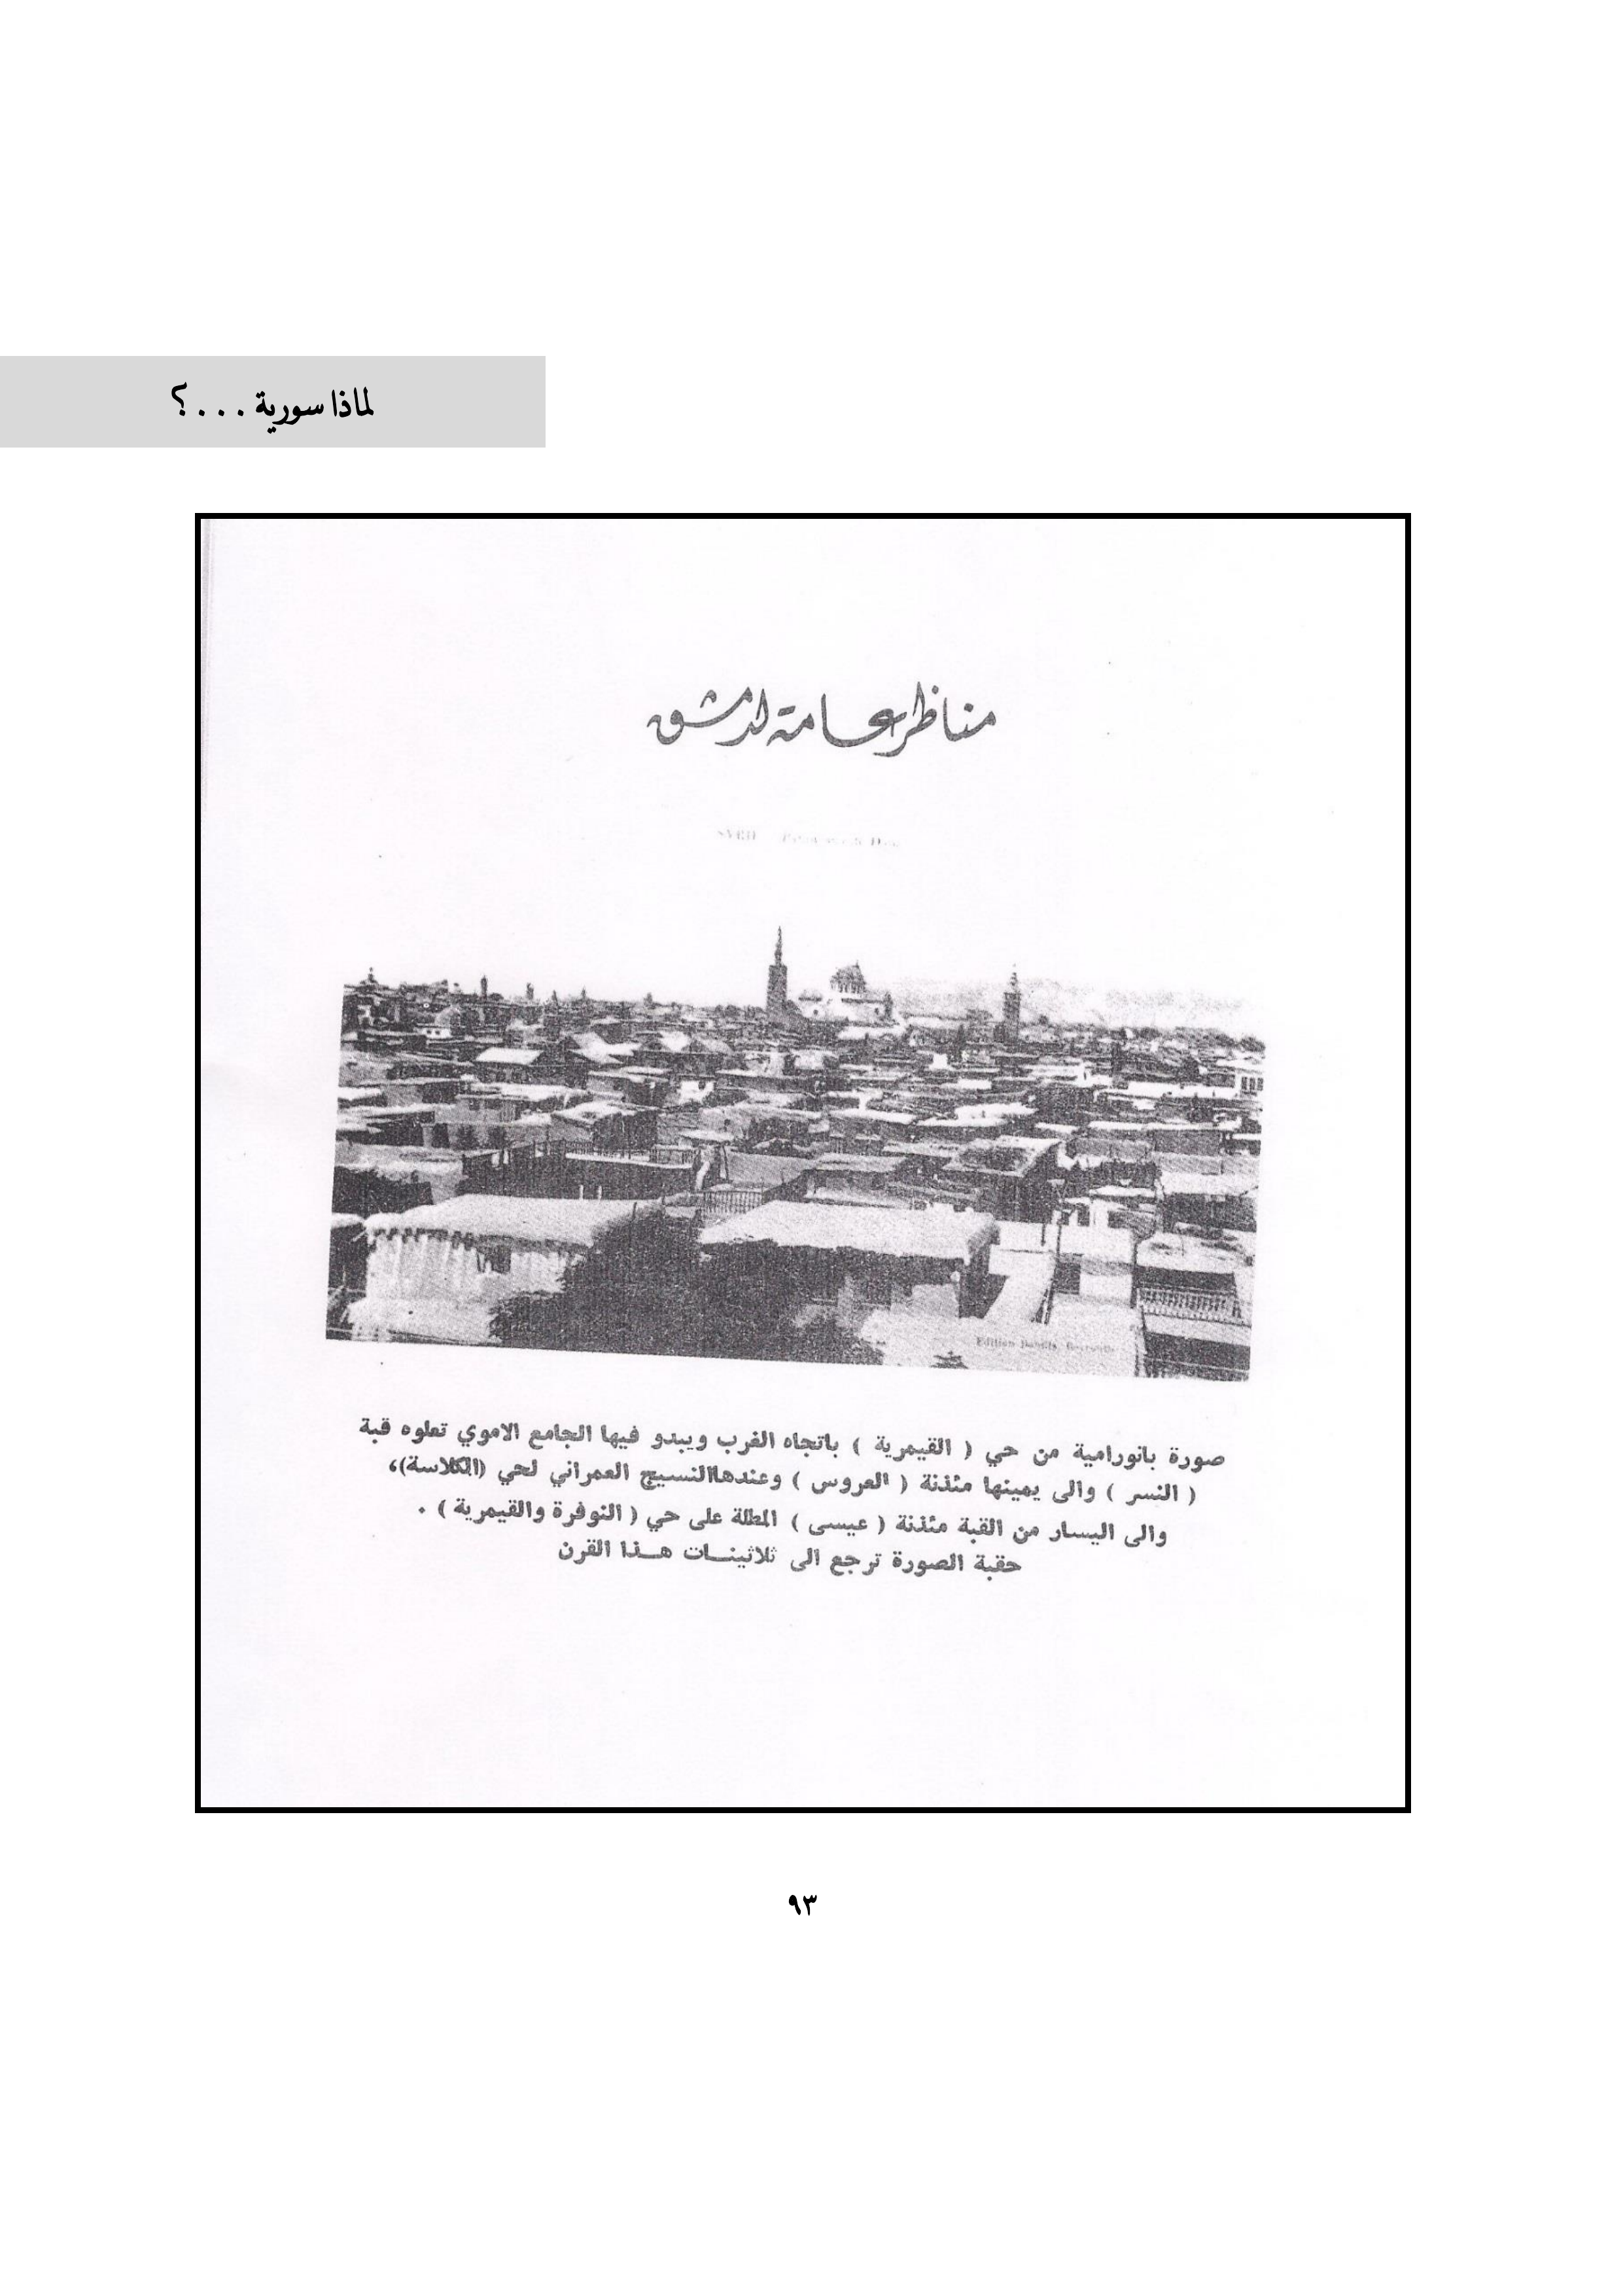 لماذا سورية . . . ؟
مناظر عامة لدمشق
صورة بانورامية من حي ( القيمرية ) باتجاه الغرب ويبدو فيها الجامع الاموي تعلوه قبة
( النسر ) والى يمينها مئذنة ( العروس ) وعندها النسيج العمراني لحي (الكلاسة)،
والى اليسار من القبة مئذنة ( عيسى ) المطلة على حي ( النوفرة والقيمرية ) .
حقبة الصورة ترجع الى ثلاثينات هذا القرن
٩٣